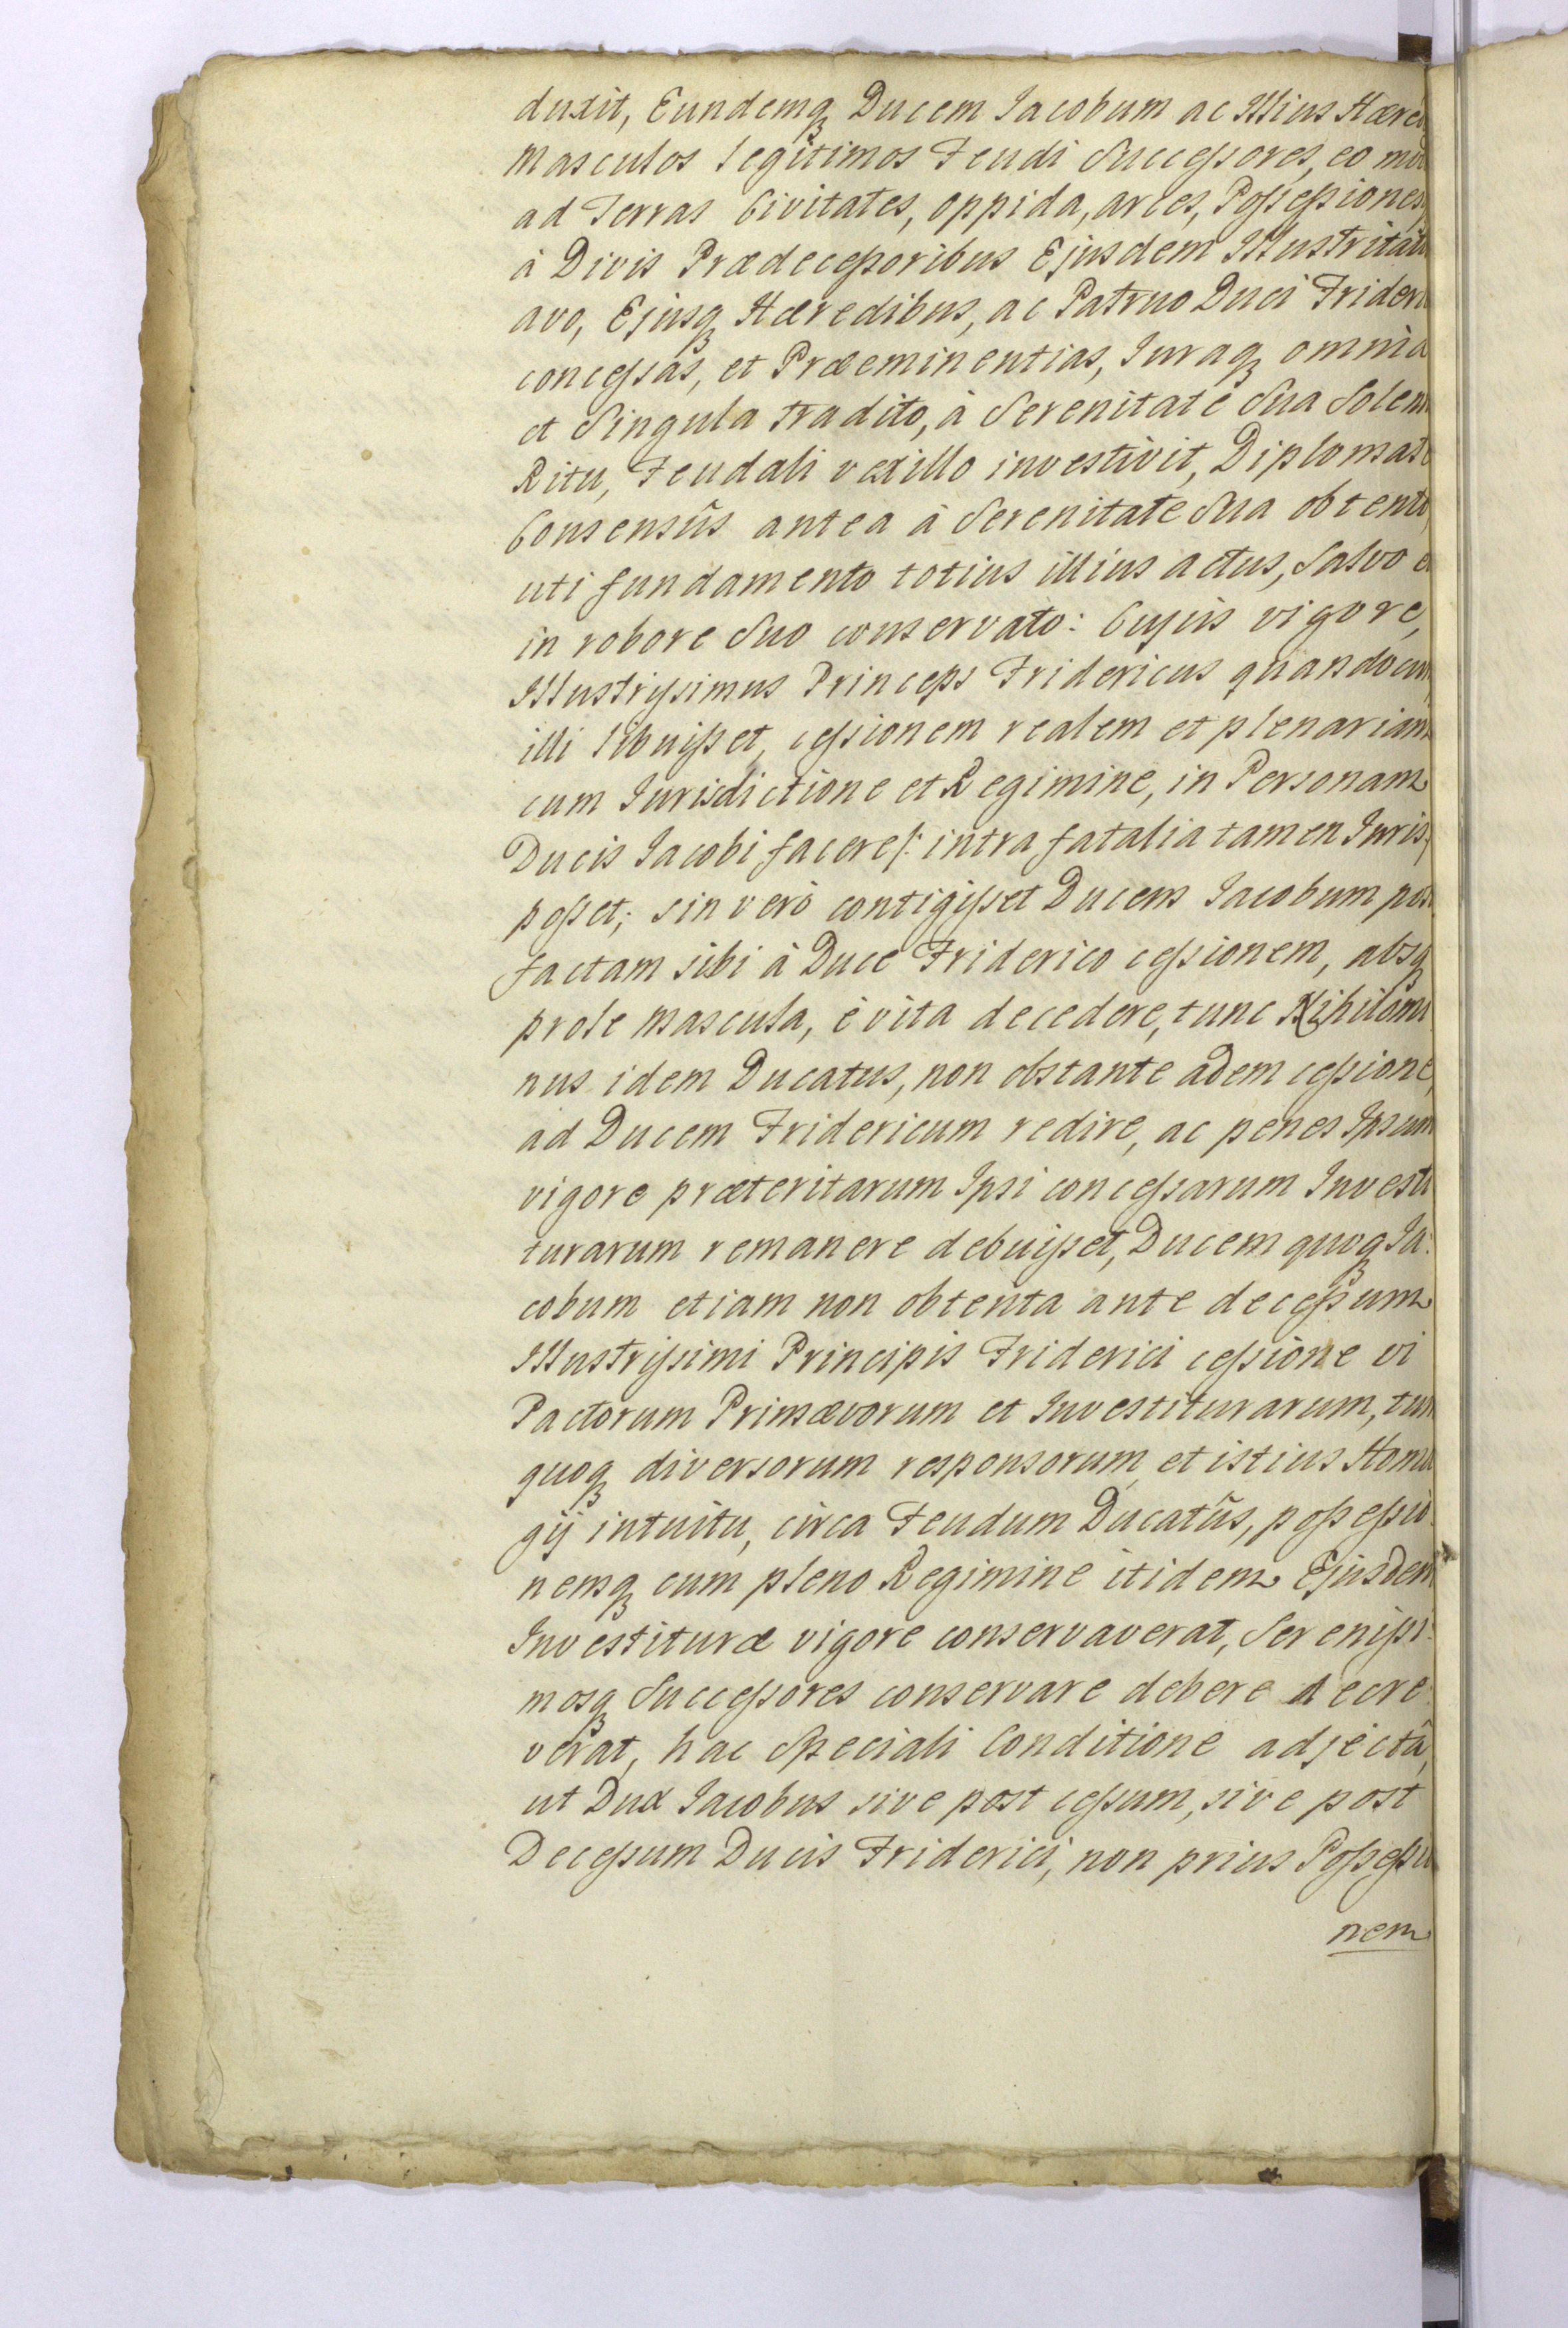 duxit, Eundemq Ducem Jacobum ac Illius Hære
Masculos legitimos Feudi Successores, eo mo
ad Terras Civitates, oppida, arces, Possessiones
à Divis Prædecessoribus Ejusdem Illustritat
avo, Ejusq Hæredibus, ac Patruo Duci Frideri
concessas, et Præeminentias, Juraq omnia
et Singula tradito, à Serenitate Sua Solem
Ritu, Feudali vexillo investivit, Diplomat
Consensûs antea à Serenitate Sua obtento
uti fundamento totius illius actus, Salvo e
in robore Suo conservato: Cujus vigore,
Illustrissimus Princeps Fridericus quandocun
illi libuisset, cessionem realem et plenariam
cum Jurisdictione et Regimine, in Personam
Ducis Jacobi facere /: intra fatalia tamen Juris
posset; sin verò contigisset Ducem Jacobum pos
factam sibi à Duce Friderico cessionem, absq
prole mascula, è vita decedere, tunc Nihilomi
nus idem Ducatus, non obstante adem cessione,
ad Ducem Fridericum redire, ac penes Ipsum
vigore præteritarum Ipsi concessarum Investi
turarum remanere debuisset, Ducem quoq Ja:
cobum etiam non obtenta ante decessum
Illustrissimi Principis Friderici cessione vi
Pactorum Primævorum et Investiturarum, tum
quoq diversorum responsorum et istius Homa
gij intuitu, circa Feudum Ducatûs, possessio
nemq cum pleno Regimine itidem Ejusdem
Investituræ vigore conservaverat, Serenissi:
mosq Successores conservare debere decre:
verat, hac Speciali Conditione adjectâ,
ut Dux Jacobus sive post cessum, sive post
Decessum Ducis Friderici, non prius Possessio
nem